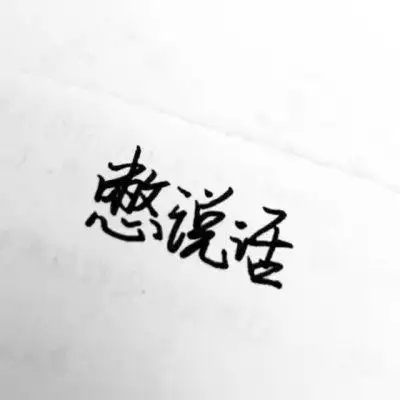 憋说话